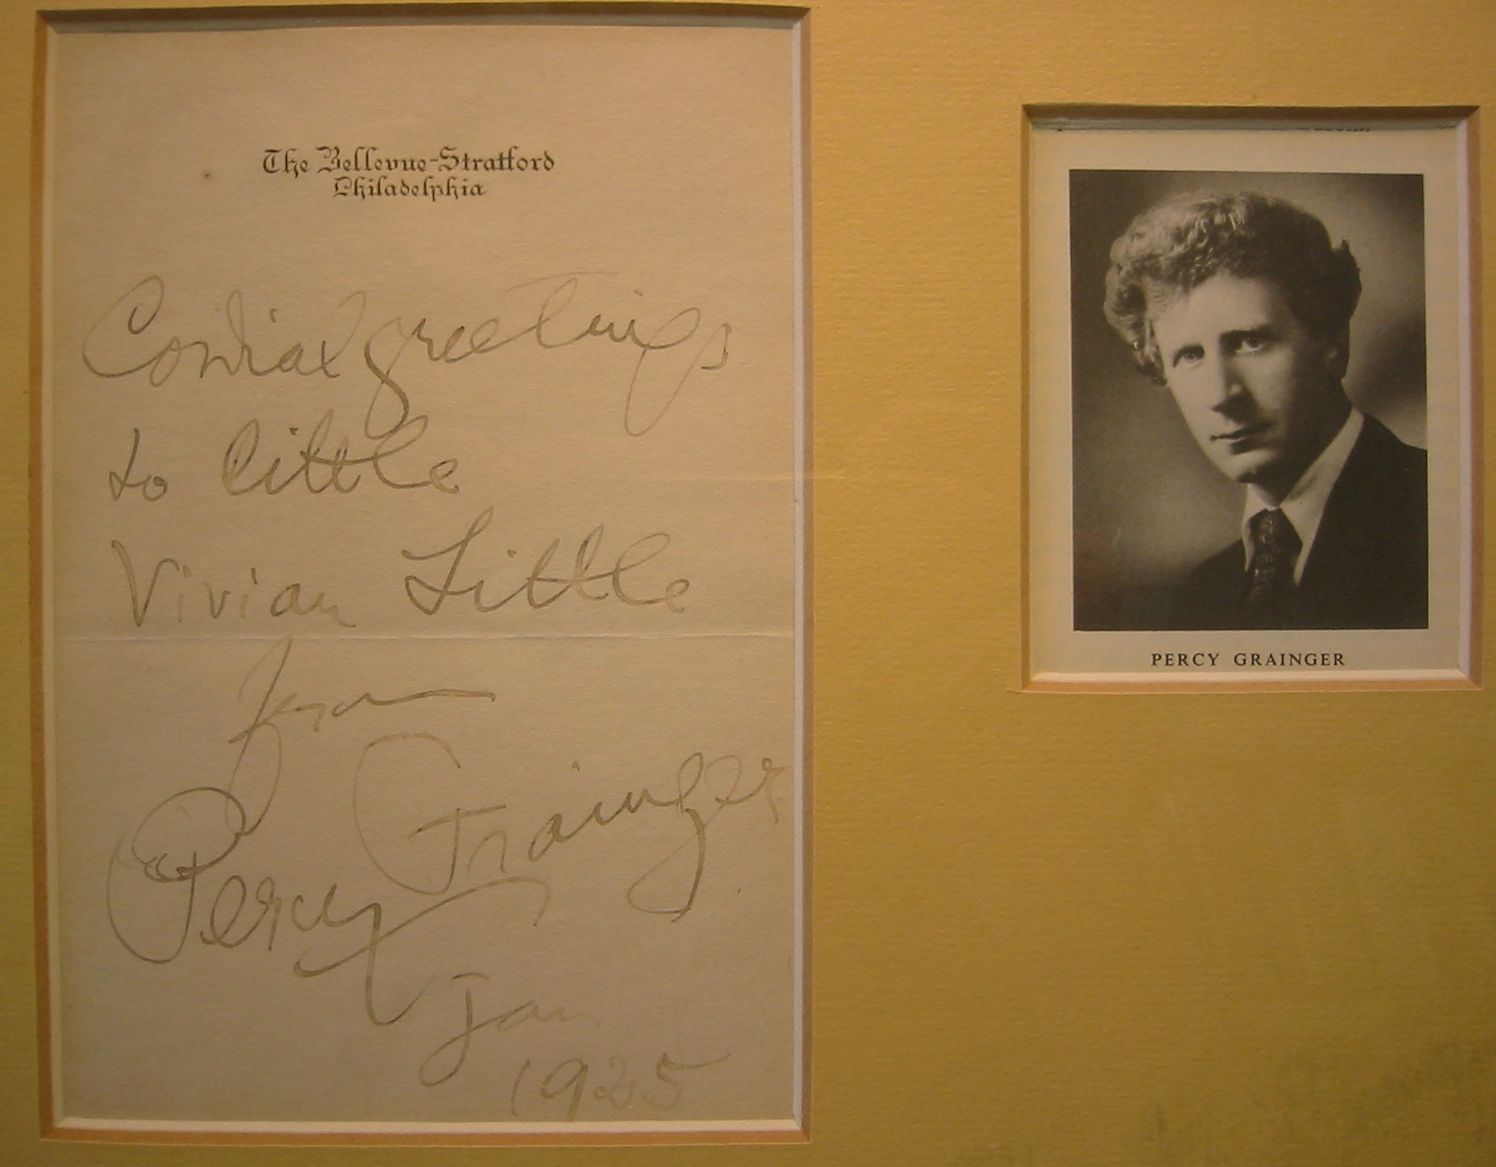 The Bellevue-Stratford
Philadelphia
Cordial greetings
to little
Vivian Little
from
Percy Grainger
Jan
1925
PERCY GRAINGER